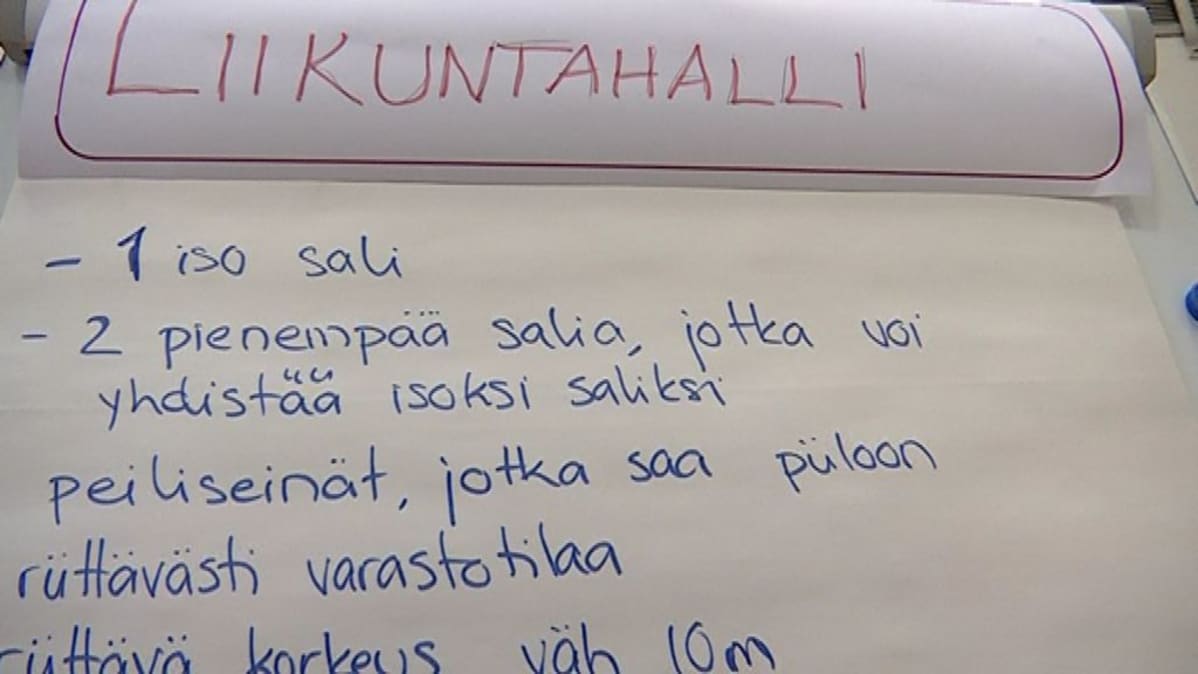 LIIKUNTAHALLI
- 1 iso sali
- 2 pienempää salia, jotka voi
yhdistää isoksi saliksi
peiliseinät, jotka saa piiloon
riittävästi varastotilaa
riittävä korkeus väh 10m